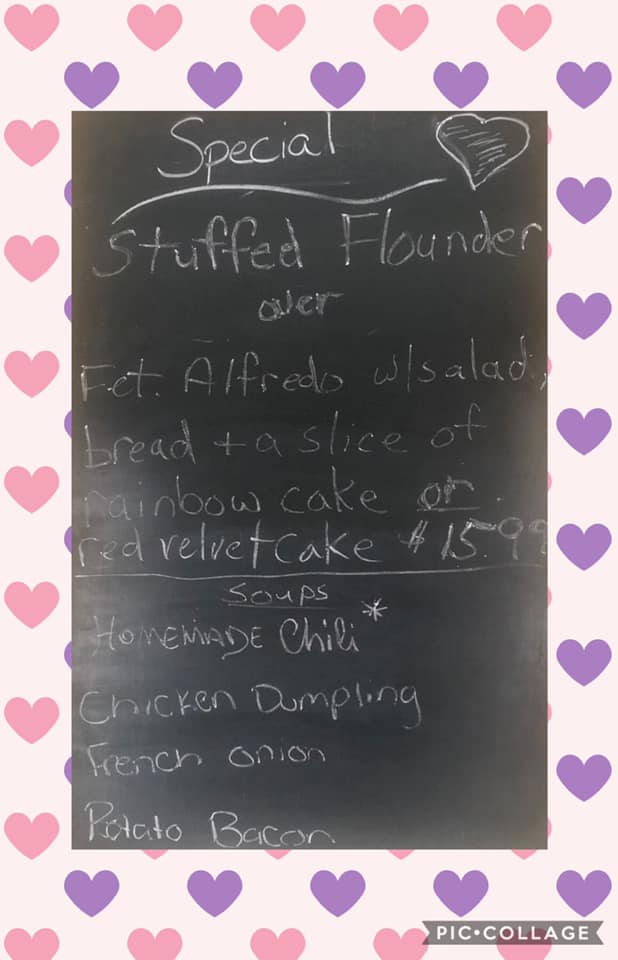 Special
Stuffed Flounder
over
Fct. Alfredo w/salad,
bread + a slice of
rainbow cake or
red velvet cake $15.99
Soups
HOMEMADE Chili *
Chicken Dumpling
French onion
Potato Bacon
PIC•COLLAGE